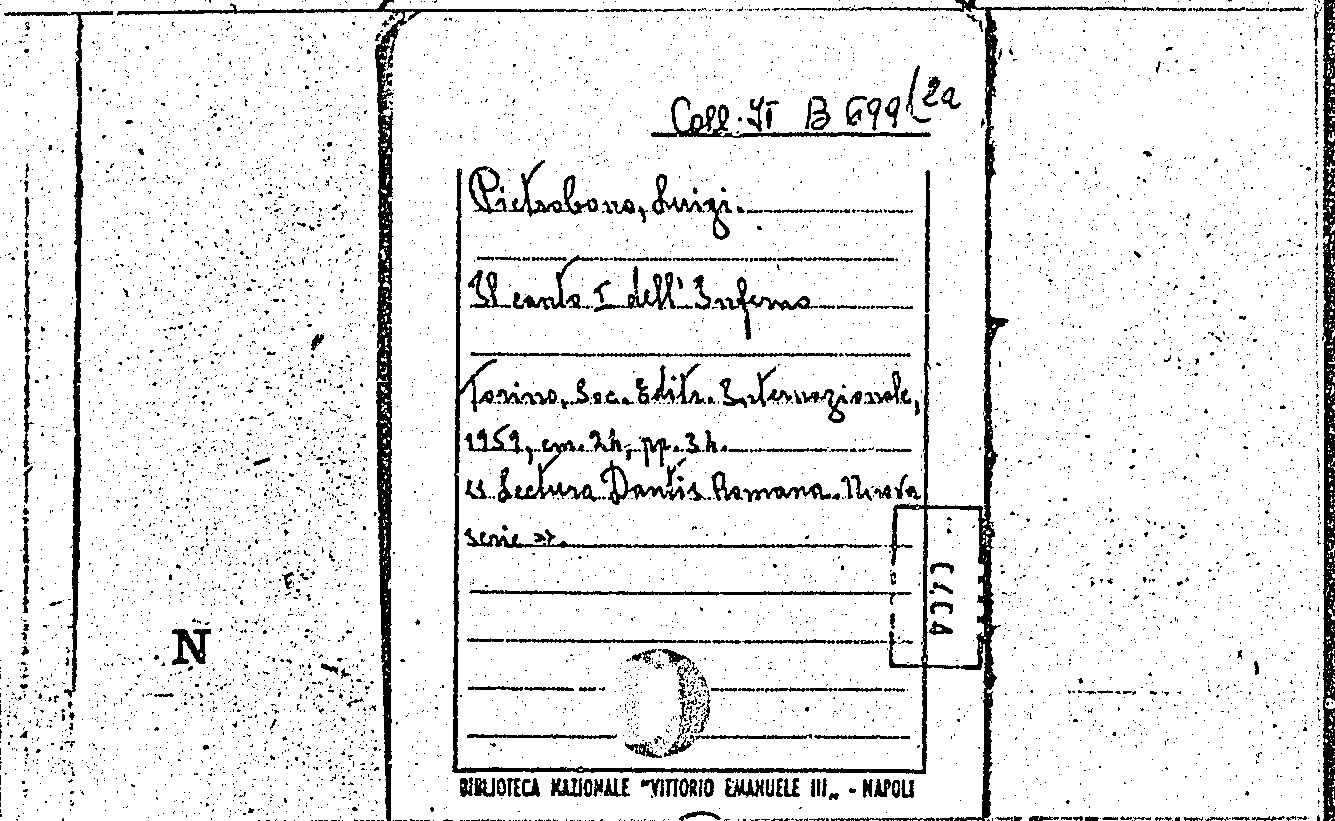 Coll. It B 699 (2a
Pietrobono, Luigi.
Il canto I dell'Inferno
Torino, Soc. Editr. Internazionale,
1959, cm. 24, pp. 34.
« Lectura Dantis Romana. Nuova
serie ».
N
BIBLIOTECA NAZIONALE "VITTORIO EMANUELE III„ - NAPOLI